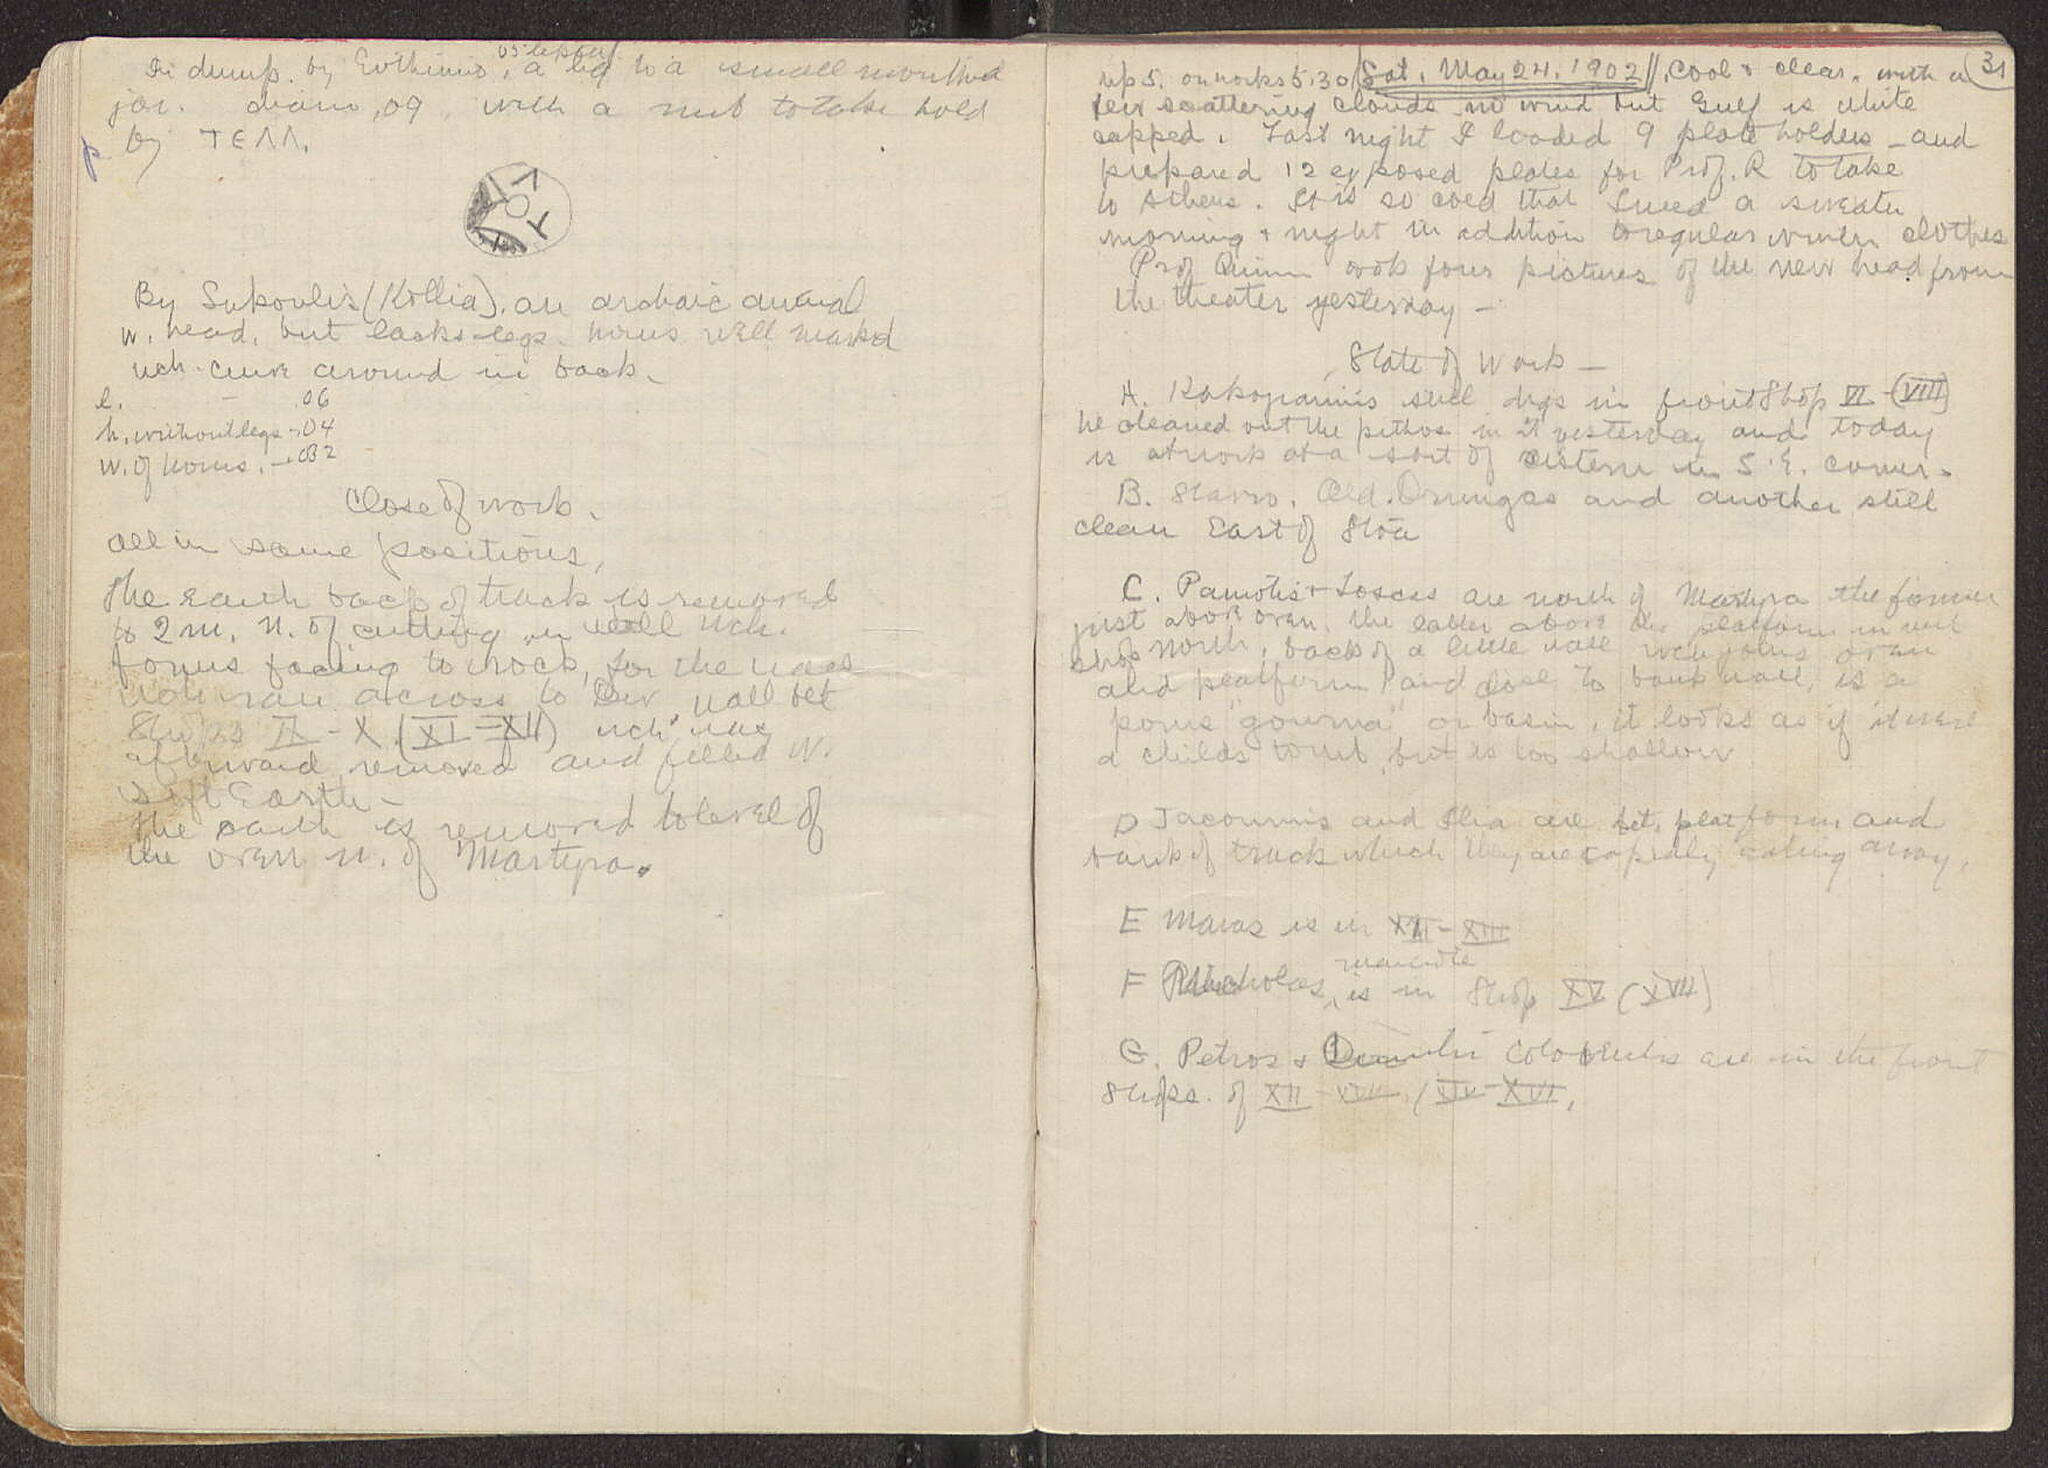 In dump. by Evthimio, a lid to a small mouthed
05 lepton
jar. diam ,09, with a nub to take hold
by TEΛΛ.
p
By Sukoulis (Kollia). an archaic animal
w. head, but lacks legs. horns well marked
wch. curve around in back.
l. - .06
h. without legs - .04
w. of horns. - .032
Close of work.
All in same positions,
The earth back of track is removed
to 2 m. N. of cutting in wall wch.
forms facing to rock, for the
wch ran across to wall bet
Shops IX - X (XI - XII) wch was
afterward removed and filled w.
soft Earth -
The earth is removed to level of
the oven N. of Martyra.
31
up 5. on works 5.30 Sat. May 24. 1902 Cool & clear. with a
few scattering clouds no wind but Gulf is white
capped. Last night I loaded 9 plate holders - and
prepared 12 exposed plates for Prof. R to take
to Athens. It is so cold that I need a sweater
morning & night in addition to regular winter clothes
Prof Quinn took four pictures of the new head from
the theater yesterday -
State of Work -
A. Kakogiannis still digs in front Shop VI - (VIII)
he cleaned out the pithos in it yesterday and today
is at work at a sort of cistern in S.E. corner.
B. Stavro, Old. Drungas and another still
clean East of Stoa
C. Pamotis & Loscas are north of Martyra the former
just above oven, the latter above the platform in next
shop north, back of a little wall wch joins oven
and platform and close to bank wall, is a
poros "gourna" or basin, it looks as if it were
a childs tomb, but is too shallow
D Jacoumis and Elia are bet. platform and
bank of track which they are rapidly eating away,
E Maras is in XII - XIII
F Nicholas, is in Shop XV (XVII)
G. Petros & Dimitri are in the front
Shops. of XII - XVII (XIV - XVI,